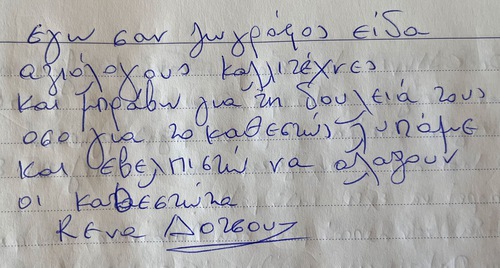 εγω σαν ζωγράφος είδα
αξιόλογους καλλιτέχνες
και μπράβω για τη δουλειά τους
οσο για το καθεστώς λυπάμε
και εβελπιστώ να αλαξουν
οι καθεστώτα
Ρενα